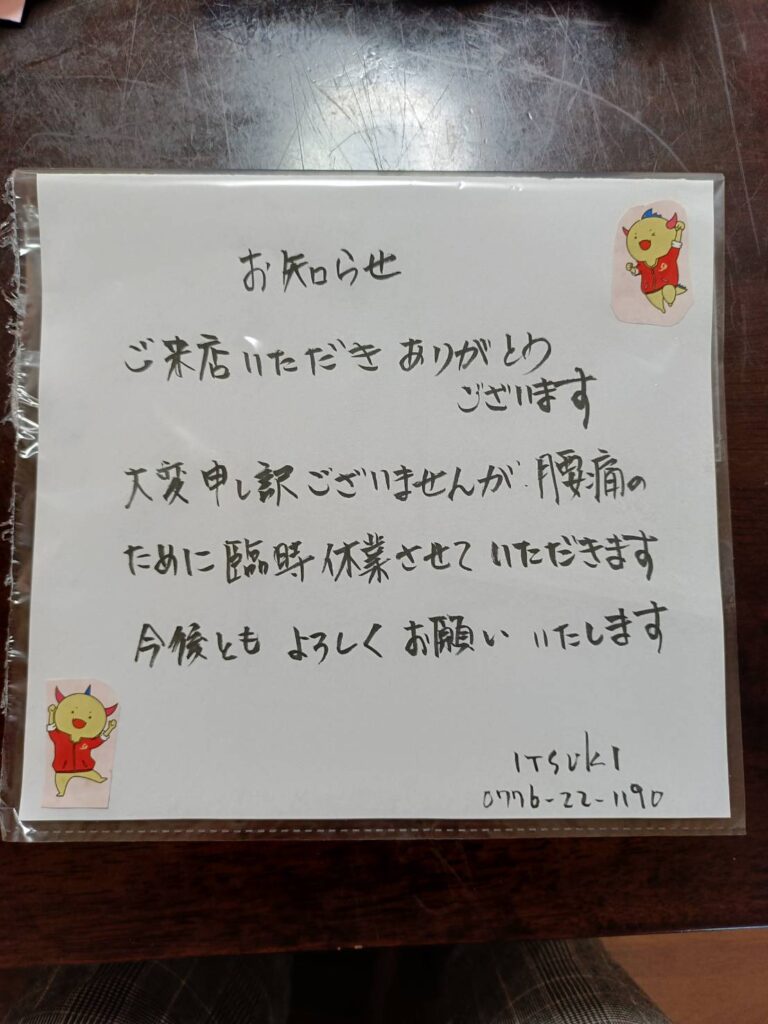 お知らせ
ご来店いただき ありがとう
ございます
大変申し訳ございませんが 腰痛の
ために臨時休業させて いただきます
今後とも よろしく お願い いたします
ITSUKI
0776-22-1190